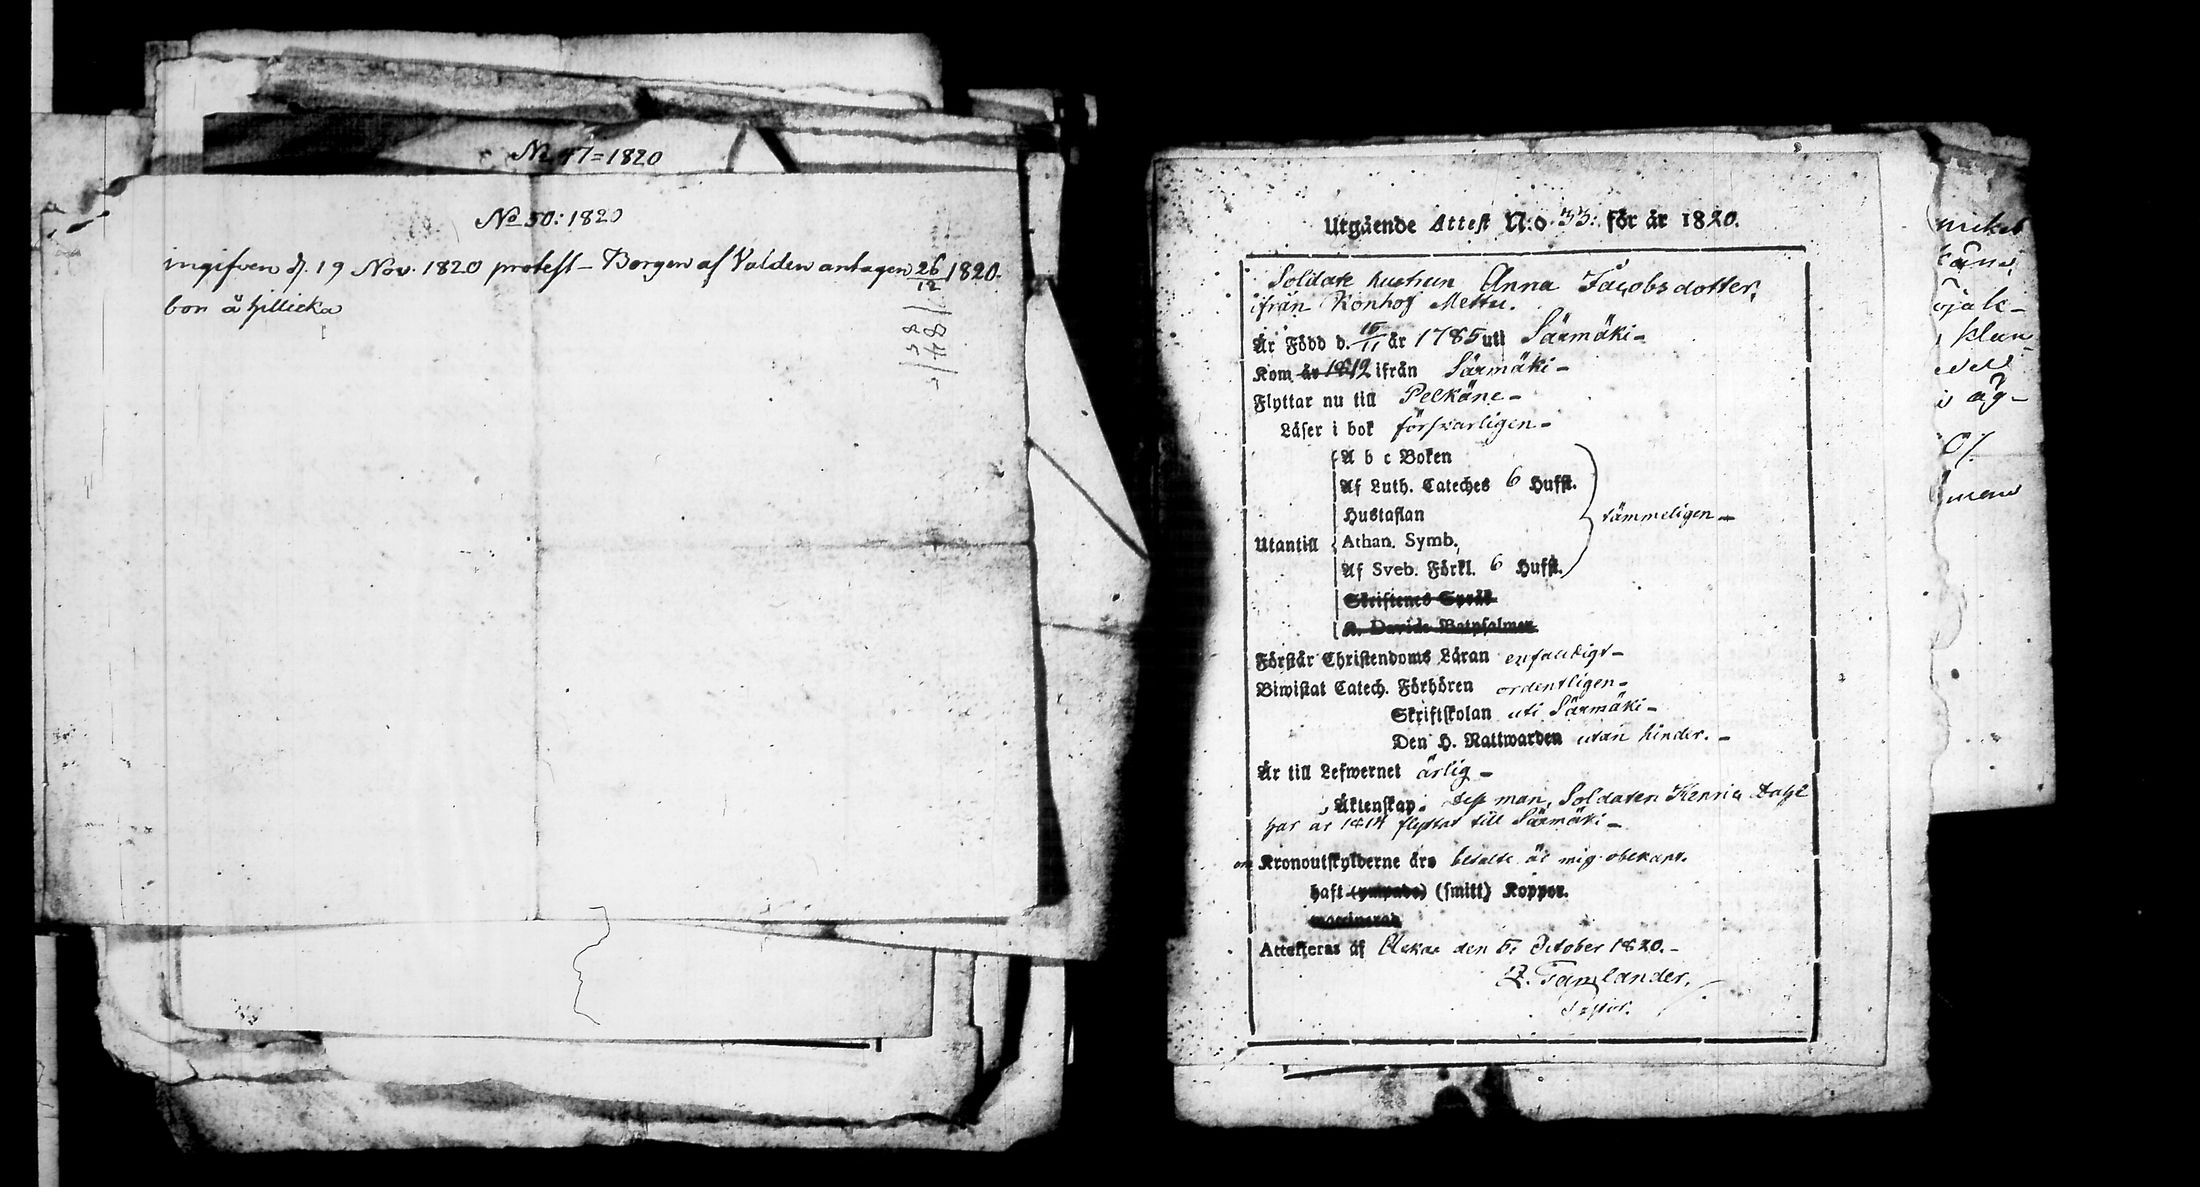 No 47=1820
No 50: 1820
ingifven d. 19 Nov. 1820 protest – Borgen af Valden antagen 26/12 1820.
bor å hillicka
Utgående Attest N:o 33: för år 1820.
Soldats hustrun Anna Jacobsdotter,
ifrån Konhof Mettu.
Är Född d. 15/11 år 1785 uti Särmäki –
Kom år 1812 ifrån Särmäki –
Flyttar nu till Pelkäne –
Läser i bok försvarligen –
A b c Boken
Af Luth. Cateches 6 Hufst.
Hustaflan
tämmeligen –
Utantill
Athan. Symb.
Af Sveb. Förkl. 6 Hufst.
Skriftenes Språk
K. Davids Botpsalmer
Förstår Christendoms Läran enfaldigt –
Biwistat Catech. Förhören ordentligen –
Skriftskolan uti Särmäki –
Den H. Nattwarden utan hinder. –
Är till Lefwernet ärlig –
Äktenskap. dess man, Soldaten Henric Dahl
har år 1814 flyttat till Särmäki –
om Kronoutskylderne äro betalte är mig obekant.
haft (ympade) (smitt) Koppor.
vaccinerad
Attesteras af Ackas den 5. October 1820. –
Tamlander.
Pastor.